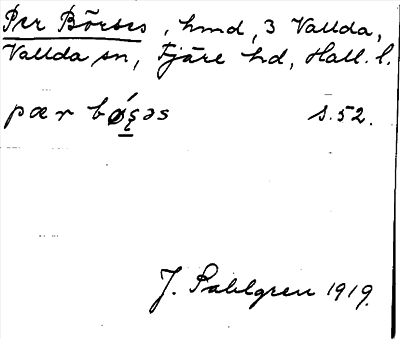 Per Börses, hmd, 3 Vallda,
Vallda sn, Fjäre hd, Hall. l.
pær bø̀ʂəs s. 52.
J. Sahlgren 1919.